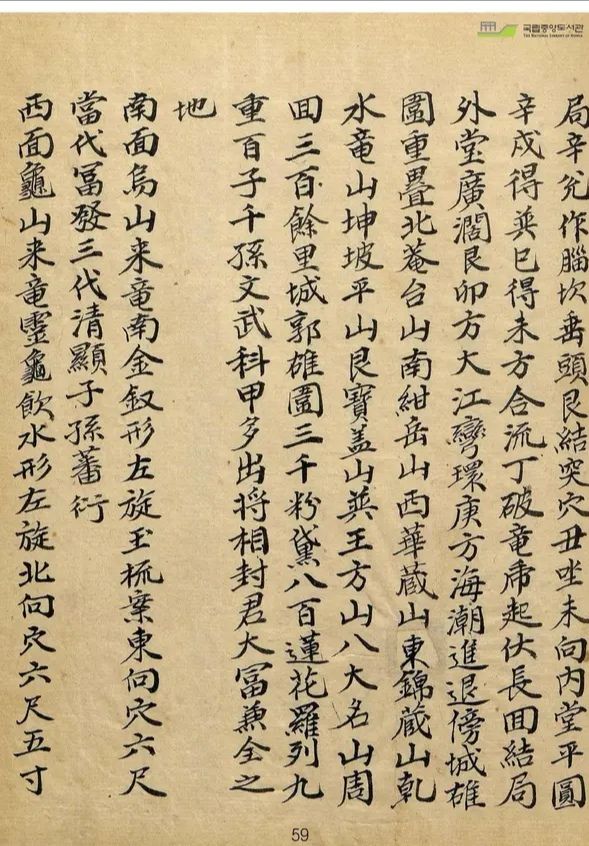 국립중앙도서관
THE NATIONAL LIBRARY OF KOREA
局辛兊作腦坎垂頭艮結突穴丑坐未向內堂平圓
辛戌得巽巳得未方合流丁破竜虎起伏長回結局
外堂廣濶艮卯方大江彎環庚方海潮進退傍城雄
圍重疊北菴台山南紺岳山西華蔵山東錦蔵山乹
水竜山坤坡平山艮寶盖山巽王方山八大名山周
回三百餘里城郭雄圍三千粉黛八百蓮花羅列九
重百子千孫文武科甲多出将相封君大冨兼全之
地
南面烏山来竜南金釵形左旋玉梳案東向穴六尺
當代冨發三代清顯子孫蕃衍
西面龜山来竜靈龜飲水形左旋北向穴六尺五寸
59